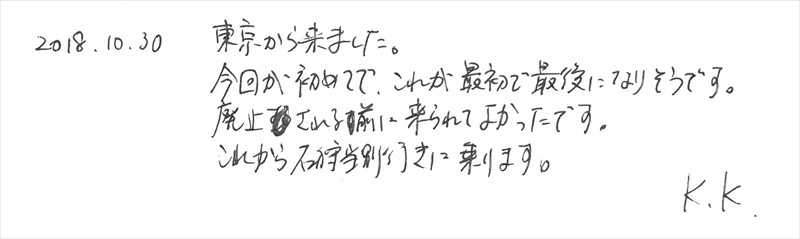 2018.10.30 東京から来ました。
今回が初めてで、これが最初で最後になりそうです。
廃止される前に来られてよかったです。
これから石狩当別行きに乗ります。
K.K.